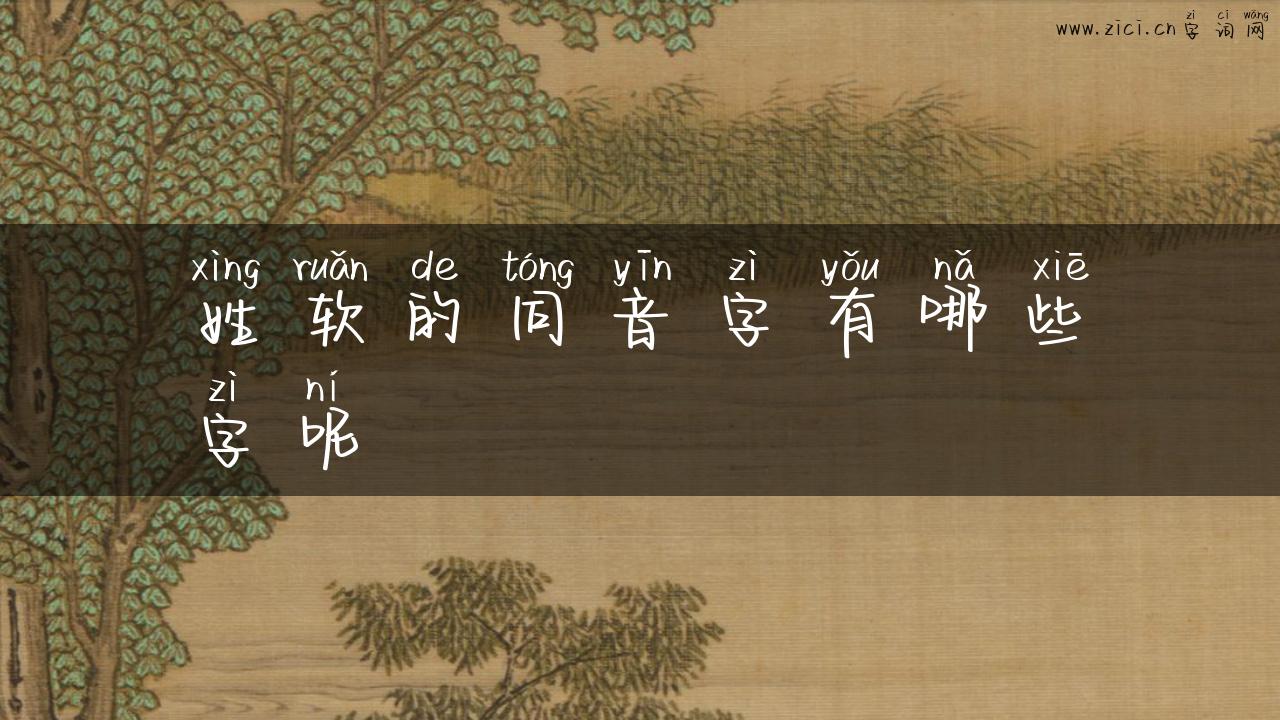 zì cí wǎng
www.zici.cn字词网
xìng ruǎn de tóng yīn zì yǒu nǎ xiē
姓软的同音字有哪些
zì ní
字呢